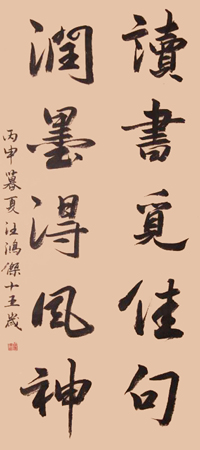 讀書覓佳句
潤墨得風神
丙申暮夏汪鴻傑十五歲